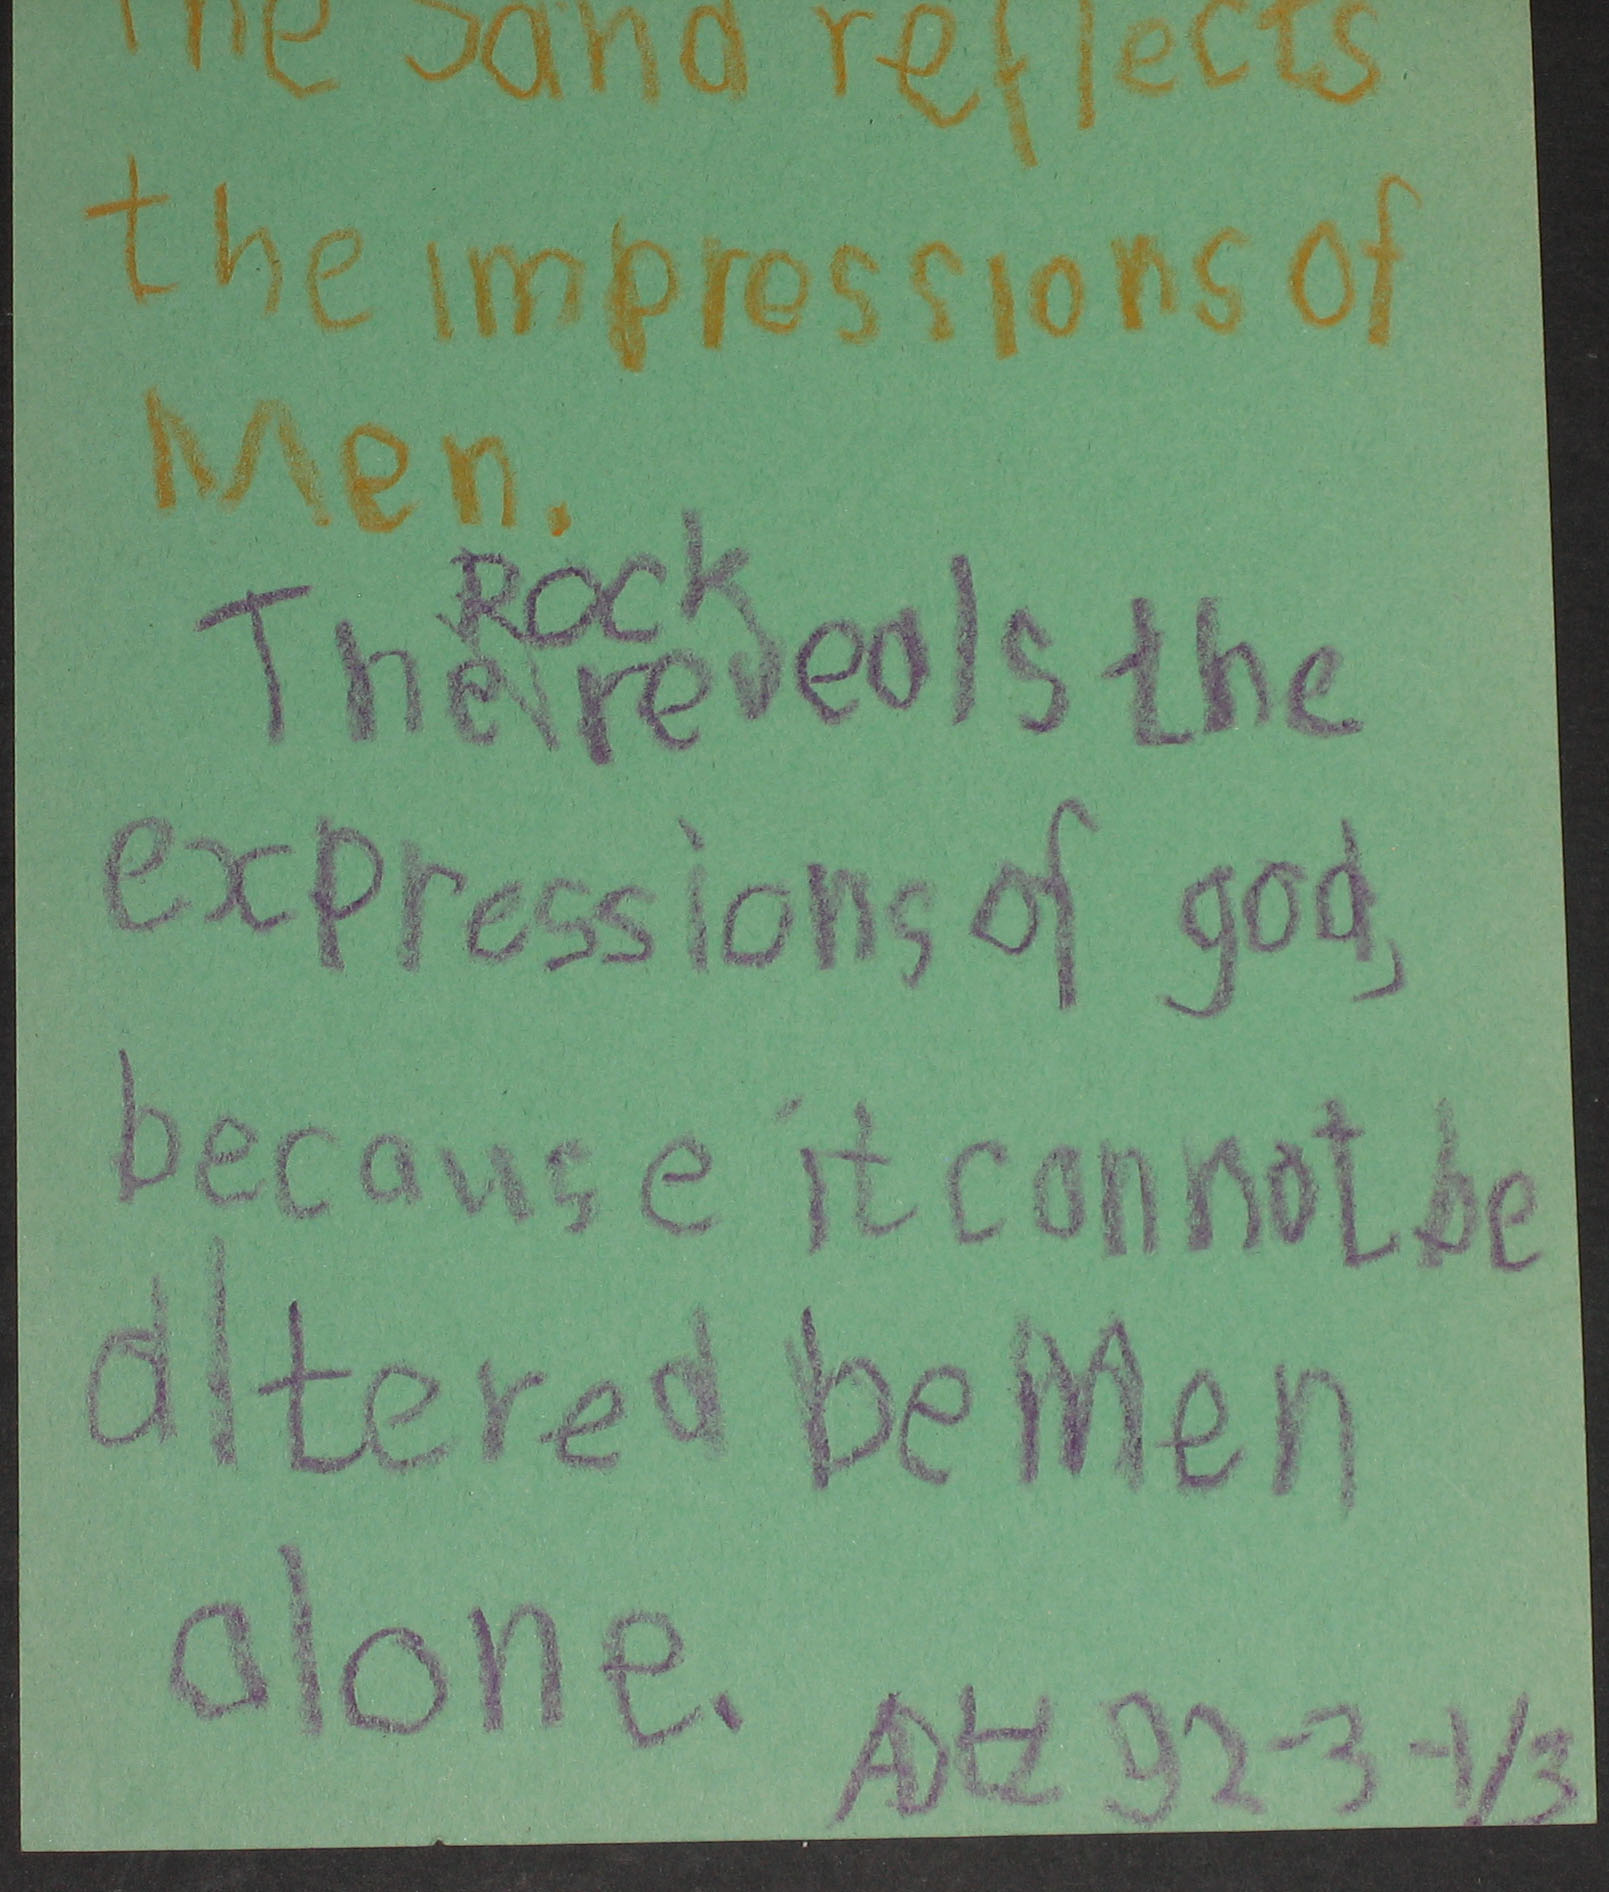 The Sand reflects
the impressions of
Men.
The Rock reveals the
expressions of god,
because it cannot be
altered be Men
alone.
92-3-1/3